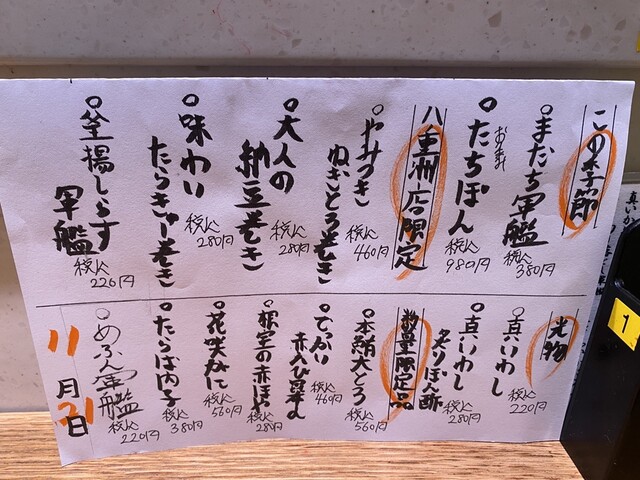 この季節
またち軍艦
税込
380円
おつまみ
たちぽん
税込
980円
八重洲店限定
やみつき
ねぎとろ巻き
税込
460円
大人の
納豆巻き
税込
280円
味わい
たらきゅー巻き
税込
280円
釜揚しらす
軍艦
税込
220円
光物
真いわし
税込
220円
真いわし
炙りぽん酢
税込
280円
数量限定品
本鮪大とろ
税込
560円
でっかい
赤えび昆布〆
税込
460円
根室の赤ほや
税込
280
花咲かに
税込
560円
たらば内子
税込
380円
めふん軍艦
税込
220円
11月21日
真いか
1